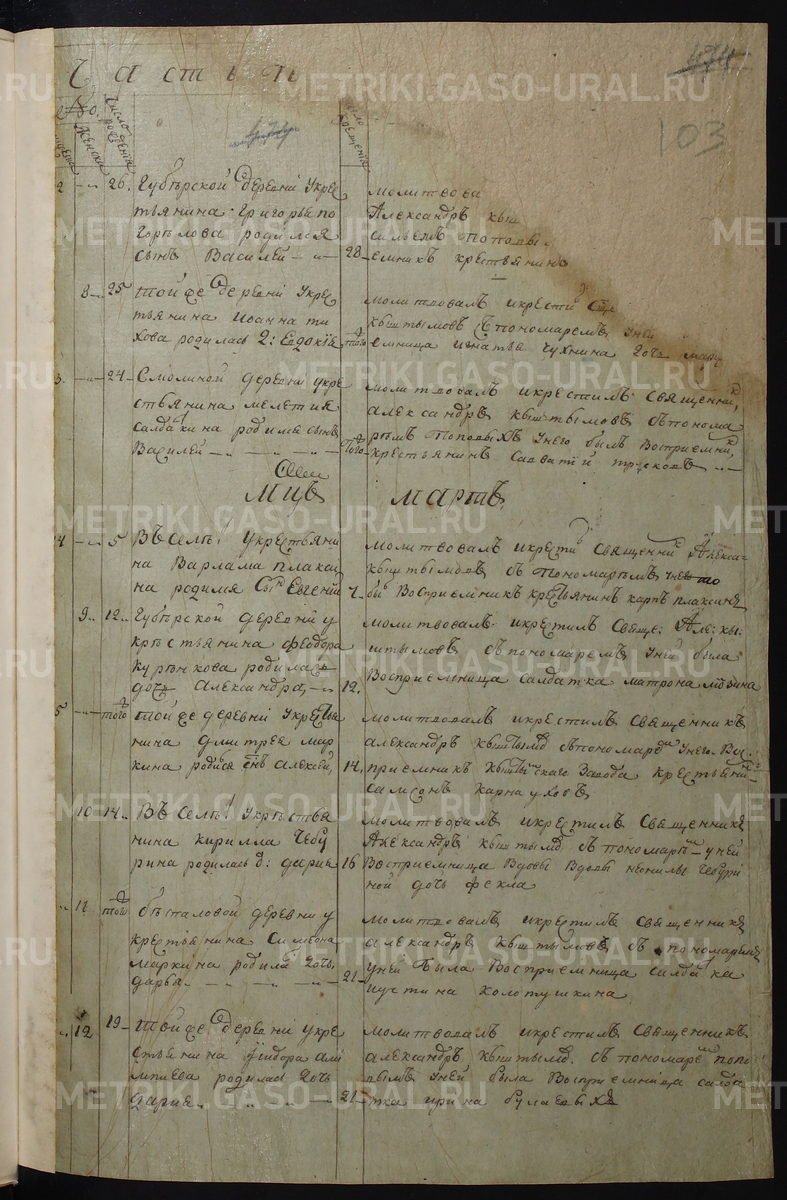 Часть
103
Число рождения
Женска
крещения
2 26. Губѣрской деревни укре
стьянина Григорья по
горѣлова родился
сынъ Василей
молитвова
Александръ кыш
28
емникъ крестьянинъ
8 25 той же деревни укрес
тьянина Иоанна ти
хова родилась Евдокия
молитвовалъ икрестил
кыштымовъ спономаремъ уней
емница игнатья чухнина дочь
3. 24 Смолиной деревни укре
стьянина мелетия
салдакина родился сынъ
Василей
молитвовалъ икрестилъ Священник
александръ кыштымовъ спонома
ремъ Поповыхъ унего былъ Восприемник
крестьянинъ савватий
Мцъ мартъ
4 5 Въ Селѣ укрестьяни
на Варлама плакси
на родился Сынъ Евгений
молитвовалъ икрести Священник Алекса
кыштымовъ съ пономарѣмъ
7 Восприемникъ крестьянинъ карпъ плаксинъ
9 12 Губѣрской деревни у
крѣстьянина феодора
курѣнкова родилась
дочь Александра
молитвовалъ икрестилъ Свяще: Але: кы
штымовъ съпономаремъ уней была
12. Восприемница салдатка матрона
5 того той же деревни укрестья
нина дмитрея мар
кина родися снъ алексей,
молитвовалъ икрестилъ Священникъ
александръ кыштымо съпономаре унего Во
14. приемникъ кыштымскаго Завода крестьянин
самсонъ карнауховъ
10 14 Въ Селѣ укрѣстья
нина кирилла чебу
рина родилась д: дария
молитвовалъ икрестилъ Священникъ
Александръ кыштымо съпономарѣм уней
16 Восприемница Вдовы неонилы чебури
ной дочь Фекла
11 той бѣсталовой деревни у
крестьянина Симеона
маркина родила дочь
дарья
молитвовалъ икрестилъ Священникъ
александръ кыштымовъ съ пономарем
уней была Восприемница салдатка
21
устина холотушкина
12 19 той же деревни укре
стьянина
родилась дочь
дария
молитвовалъ икрестилъ Священникъ
александръ кыштымо. съпономаре попо
вымъ уней была Восприемница салда
21 тка ирина булаевыхъ
METRIKI.GASO-URAL.RU